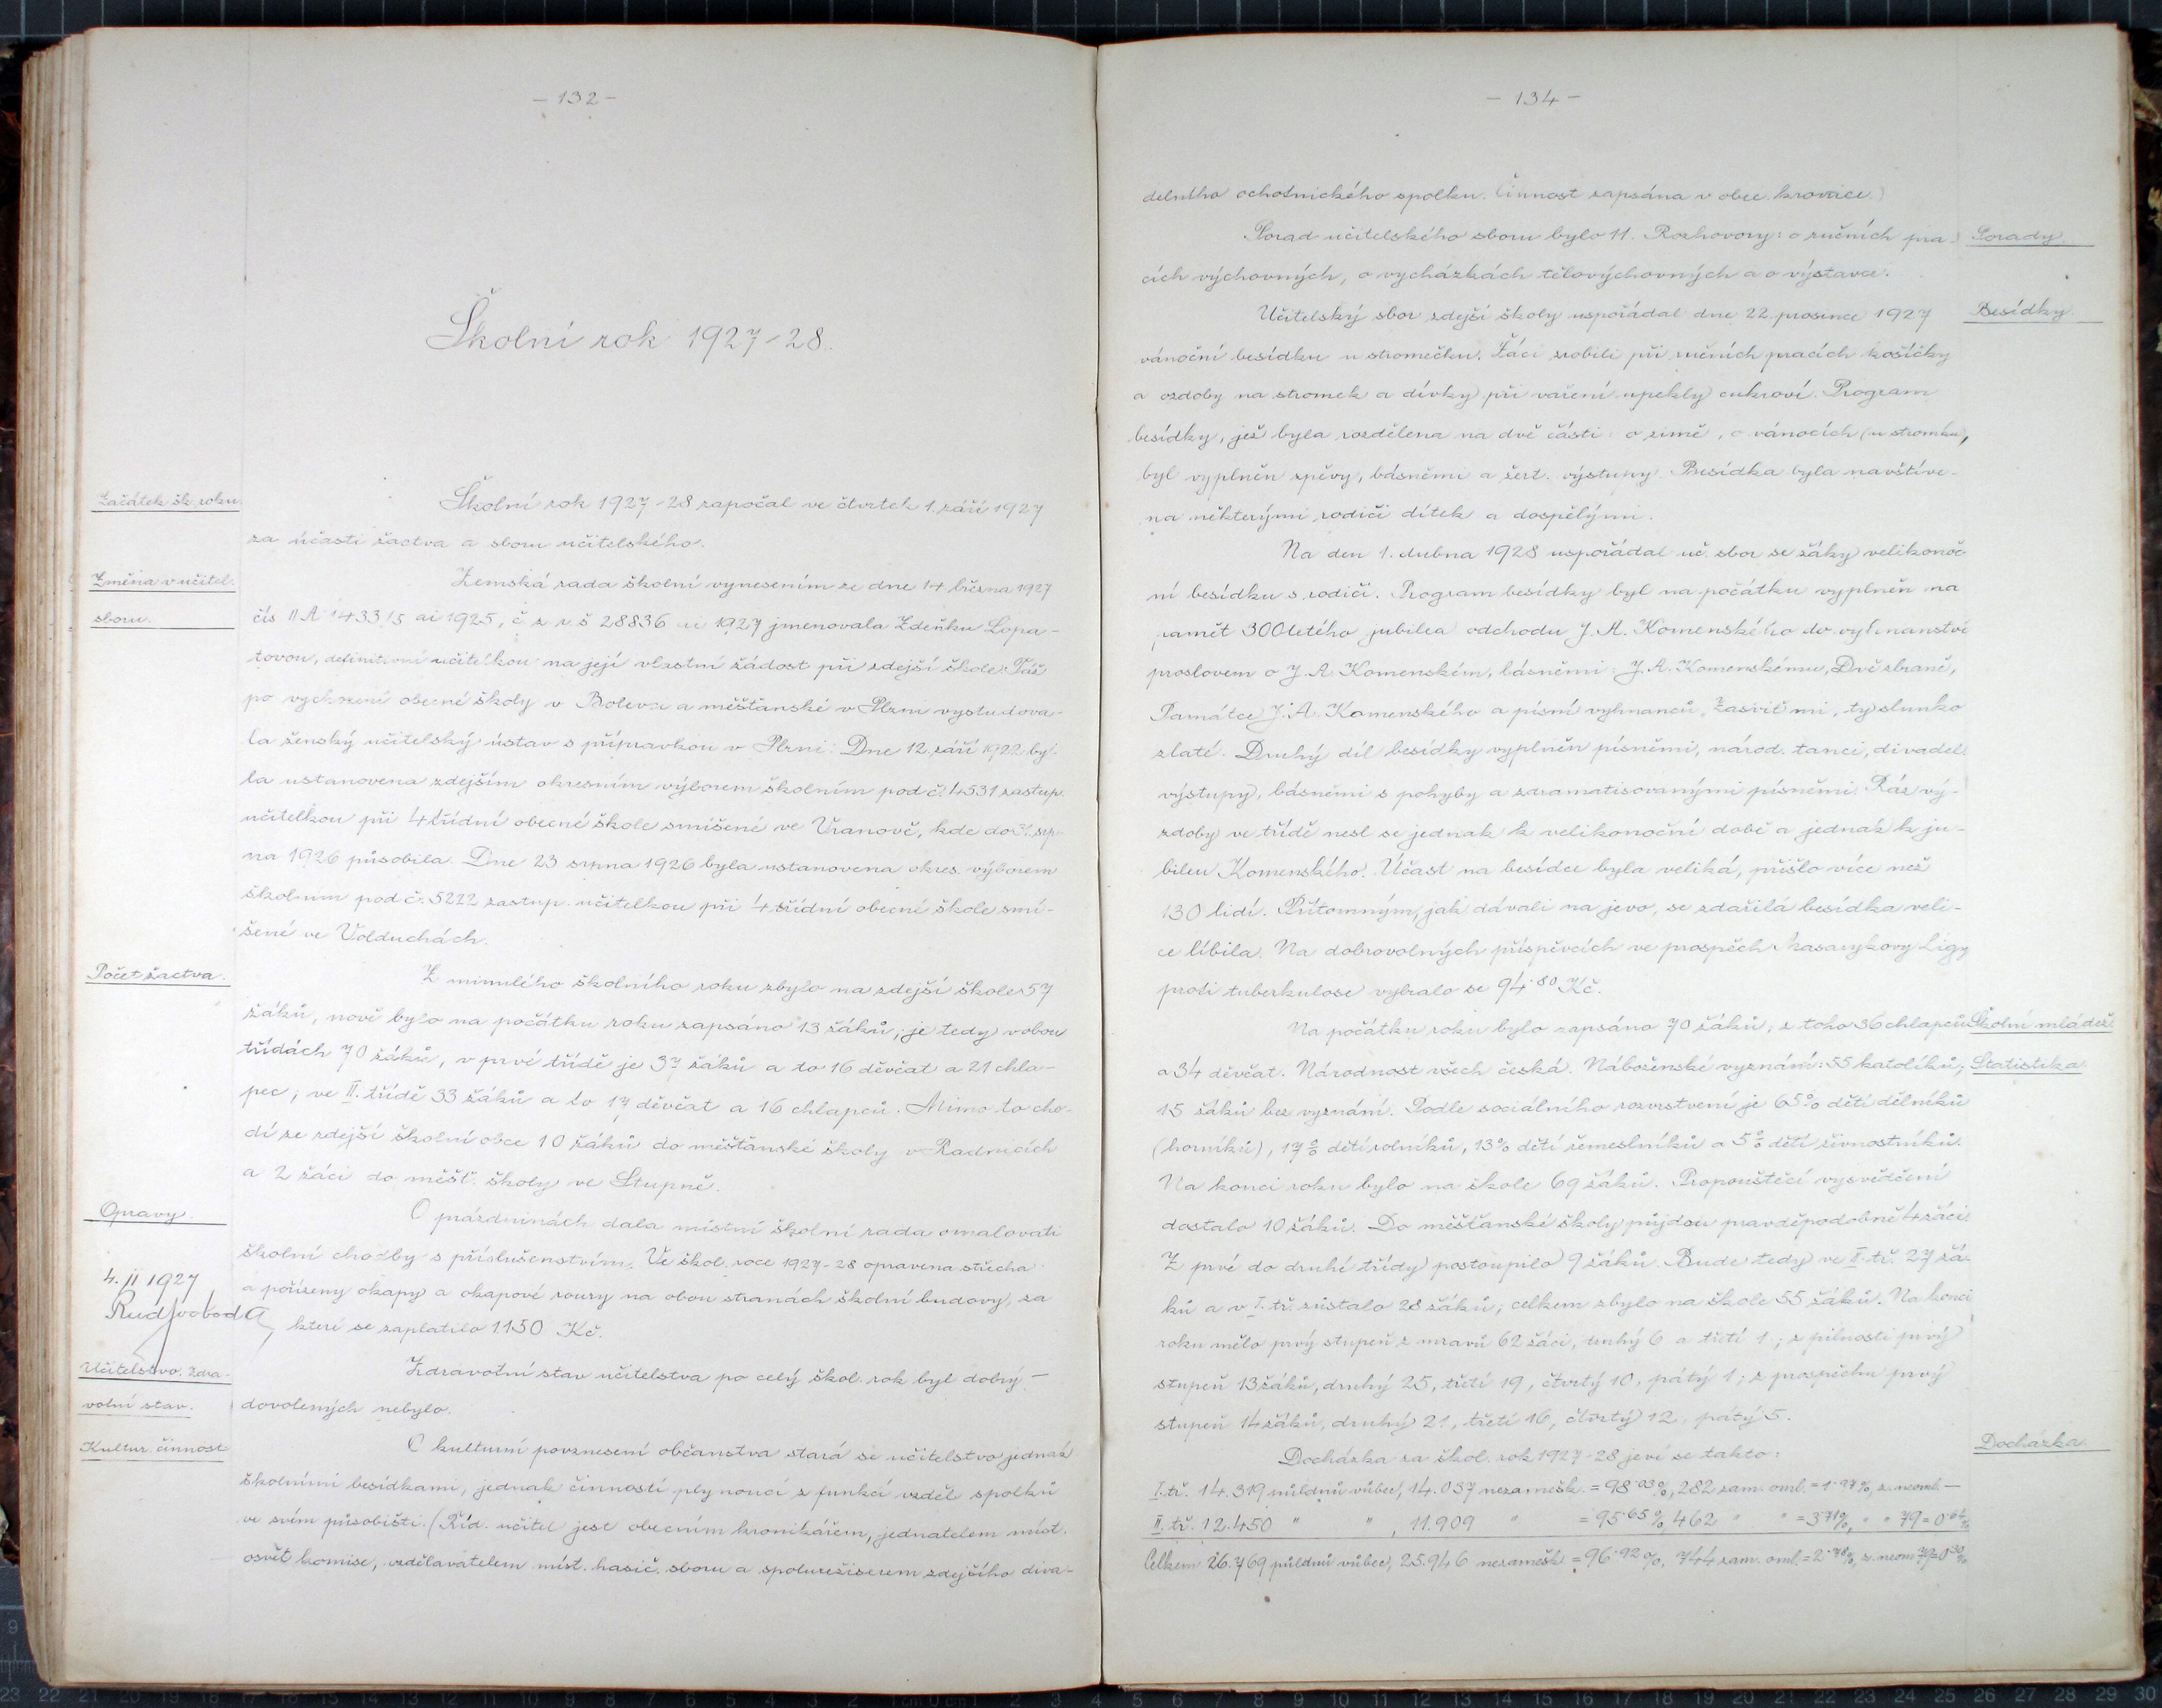 - 132 -
Školní rok 1927-28.
Začátek šk. roku.
Školní rok 1927-28 započal ve čtvrtek 1. září 1927
za účasti žactva a sboru učitelského.
Změna v učitel.
sboru.
Zemská rada školní vynesením ze dne 14 března 1927
čís II A 1433/5 ai 1925, č z r. š 28836 ai 1927 jmenovala Zdeňku Lopa-
tovou, definitivní učitelkou na její vlastní žádost při zdejší škole. Táž
po vychození obecné školy v Bolevci a měšťanské v Plzni vystudova-
la ženský učitelský ústav s přípravkou v Plzni. Dne 12. září 1922 by-
la ustanovena zdejším okresním výborem školním pod č. 4531 zastup.
učitelkou při 4třídní obecné škole smíšené ve Vranově, kde do 31. srp-
na 1926 působila. Dne 23 srpna 1926 byla ustanovena okres. výborem
školním pod č. 5222 zastup. učitelkou při 4 třídní obecné škole smí-
šené ve Volduchách.
Počet žactva.
Z minulého školního roku zbylo na zdejší škole 57
žáků, nově bylo na počátku roku zapsáno 13 žáků; je tedy v obou
třídách 70 žáků, v prvé třídě je 37 žáků a to 16 děvčat a 21 chla-
pec; ve II. třídě 33 žáků a to 17 děvčat a 16 chlapců. Mimo to cho-
dí ze zdejší školní obce 10 žáků do měšťanské školy v Radnicích
a 2 žáci do měšť. školy ve Stupně.
Opravy.
O prázdninách dala místní školní rada omalovati
školní chodby s příslušenstvím. Ve škol. roce 1927-28 opravena střecha
a pořízeny okapy a okapové roury na obou stranách školní budovy, za
které se zaplatilo 1.150 Kč.
4. II 1927
Rud Svoboda
Učitelstvo. Zdra-
votní stav.
Zdravotní stav učitelstva po celý škol. rok byl dobrý -
dovolených nebylo.
Kultur. činnost
O kulturní povznesení občanstva stará se učitelstvo jednak
školními besídkami, jednak činností plynoucí z funkcí vzděl. spolků
ve svém působišti. (Říd. učitel jest obecním kronikářem, jednatelem míst.
osvět komise, vzdělavatelem míst. hasič. sboru a spolurežiserem zdejšího diva-
- 134 -
delního ochotnického spolku. Činnost zapsána v obec. kronice.)
Porady.
Porad učitelského sboru bylo 11. Rozhovory: o ručních pra-
cích výchovných, o vycházkách tělovýchovných a o výstavce.
Besídky.
Učitelský sbor zdejší školy uspořádal dne 22. prosince 1927
vánoční besídku u stromečku. Žáci zrobili při ručních pracích košíčky
a ozdoby na stromek a dívky při vaření upekly cukroví. Program
besídky, jež byla rozdělena na dvě části: o zimě, o vánocích (u stromku),
byl vyplněn zpěvy, básněmi a žert. výstupy. Besídka byla navštíve-
na některými rodiči dítek a dospělými.
Na den 1. dubna 1928 uspořádal uč. sbor se žáky velikonoč-
ní besídku s rodiči. Program besídky byl na počátku vyplněn na
pamět 300letého jubilea odchodu J. A. Komenského do vyhnanství
proslovem o J. A. Komenském, básněmi: J. A. Komenskému, Dvě zbraně,
Památce J. A. Komenského a písní vyhnanců „Zasviť mi, ty slunko
zlaté. Druhý díl besídky vyplněn písněmi, národ. tanci, divadel.
výstupy, básněmi s pohyby a zdramatisovanými písněmi. Ráz vý-
zdoby ve třídě nesl se jednak k velikonoční době a jednak k ju-
bileu Komenského. Účast na besídce byla veliká, přišlo více než
130 lidí. Přítomným, jak dávali na jevo, se zdařilá besídka veli-
ce líbila. Na dobrovolných příspěvcích ve prospěch Masarykovy Ligy
proti tuberkulose vybralo se 94.80 Kč.
Školní mládež
Statistika.
Na počátku roku bylo zapsáno 70 žáků; z toho 36 chlapců
a 34 děvčat. Národnost všech česká. Náboženské vyznání: 55 katolíků,
15 žáků bez vyznání. Podle sociálního rozvrstvení je 65% dětí dělníků
(horníků), 17% dětí rolníků, 13% dětí řemeslníků a 5% dětí živnostníků.
Na konci roku bylo na škole 69 žáků. Propouštěcí vysvědčení
dostalo 10 žáků. Do měšťanské školy půjdou pravděpodobně 4 žáci.
Z prvé do druhé třídy postoupilo 9 žáků. Bude tedy ve II. tř. 27 žá-
ků a v I. tř. zůstalo 28 žáků; celkem zbylo na škole 55 žáků. Na konci
roku mělo prvý stupeň z mravů 62 žáci, druhý 6 a třetí 1; z pilnosti prvý
stupeň 13 žáků, druhý 25, třetí 19, čtvrtý 10, pátý 1; z prospěchu prvý
stupeň 14 žáků, druhý 21, třetí 16, čtvrtý 12, pátý 5.
Docházka.
Docházka za škol. rok 1927-28 jeví se takto:
I. tř. 14.319 půldnů vůbec, 14.037 nezamešk. = 98.03%, 282 zam. oml. = 1.97%, z. neoml. —
II. tř. 12.450 " " , 11.909 " = 95.65% 462 " " = 3.71%, " " 79 = 0.64%
Celkem 26.769 půldnů vůbec, 25.946 nezamešk. = 96.92%, 744 zam. oml. = 2.78%, z. neom 79 = 0.30%